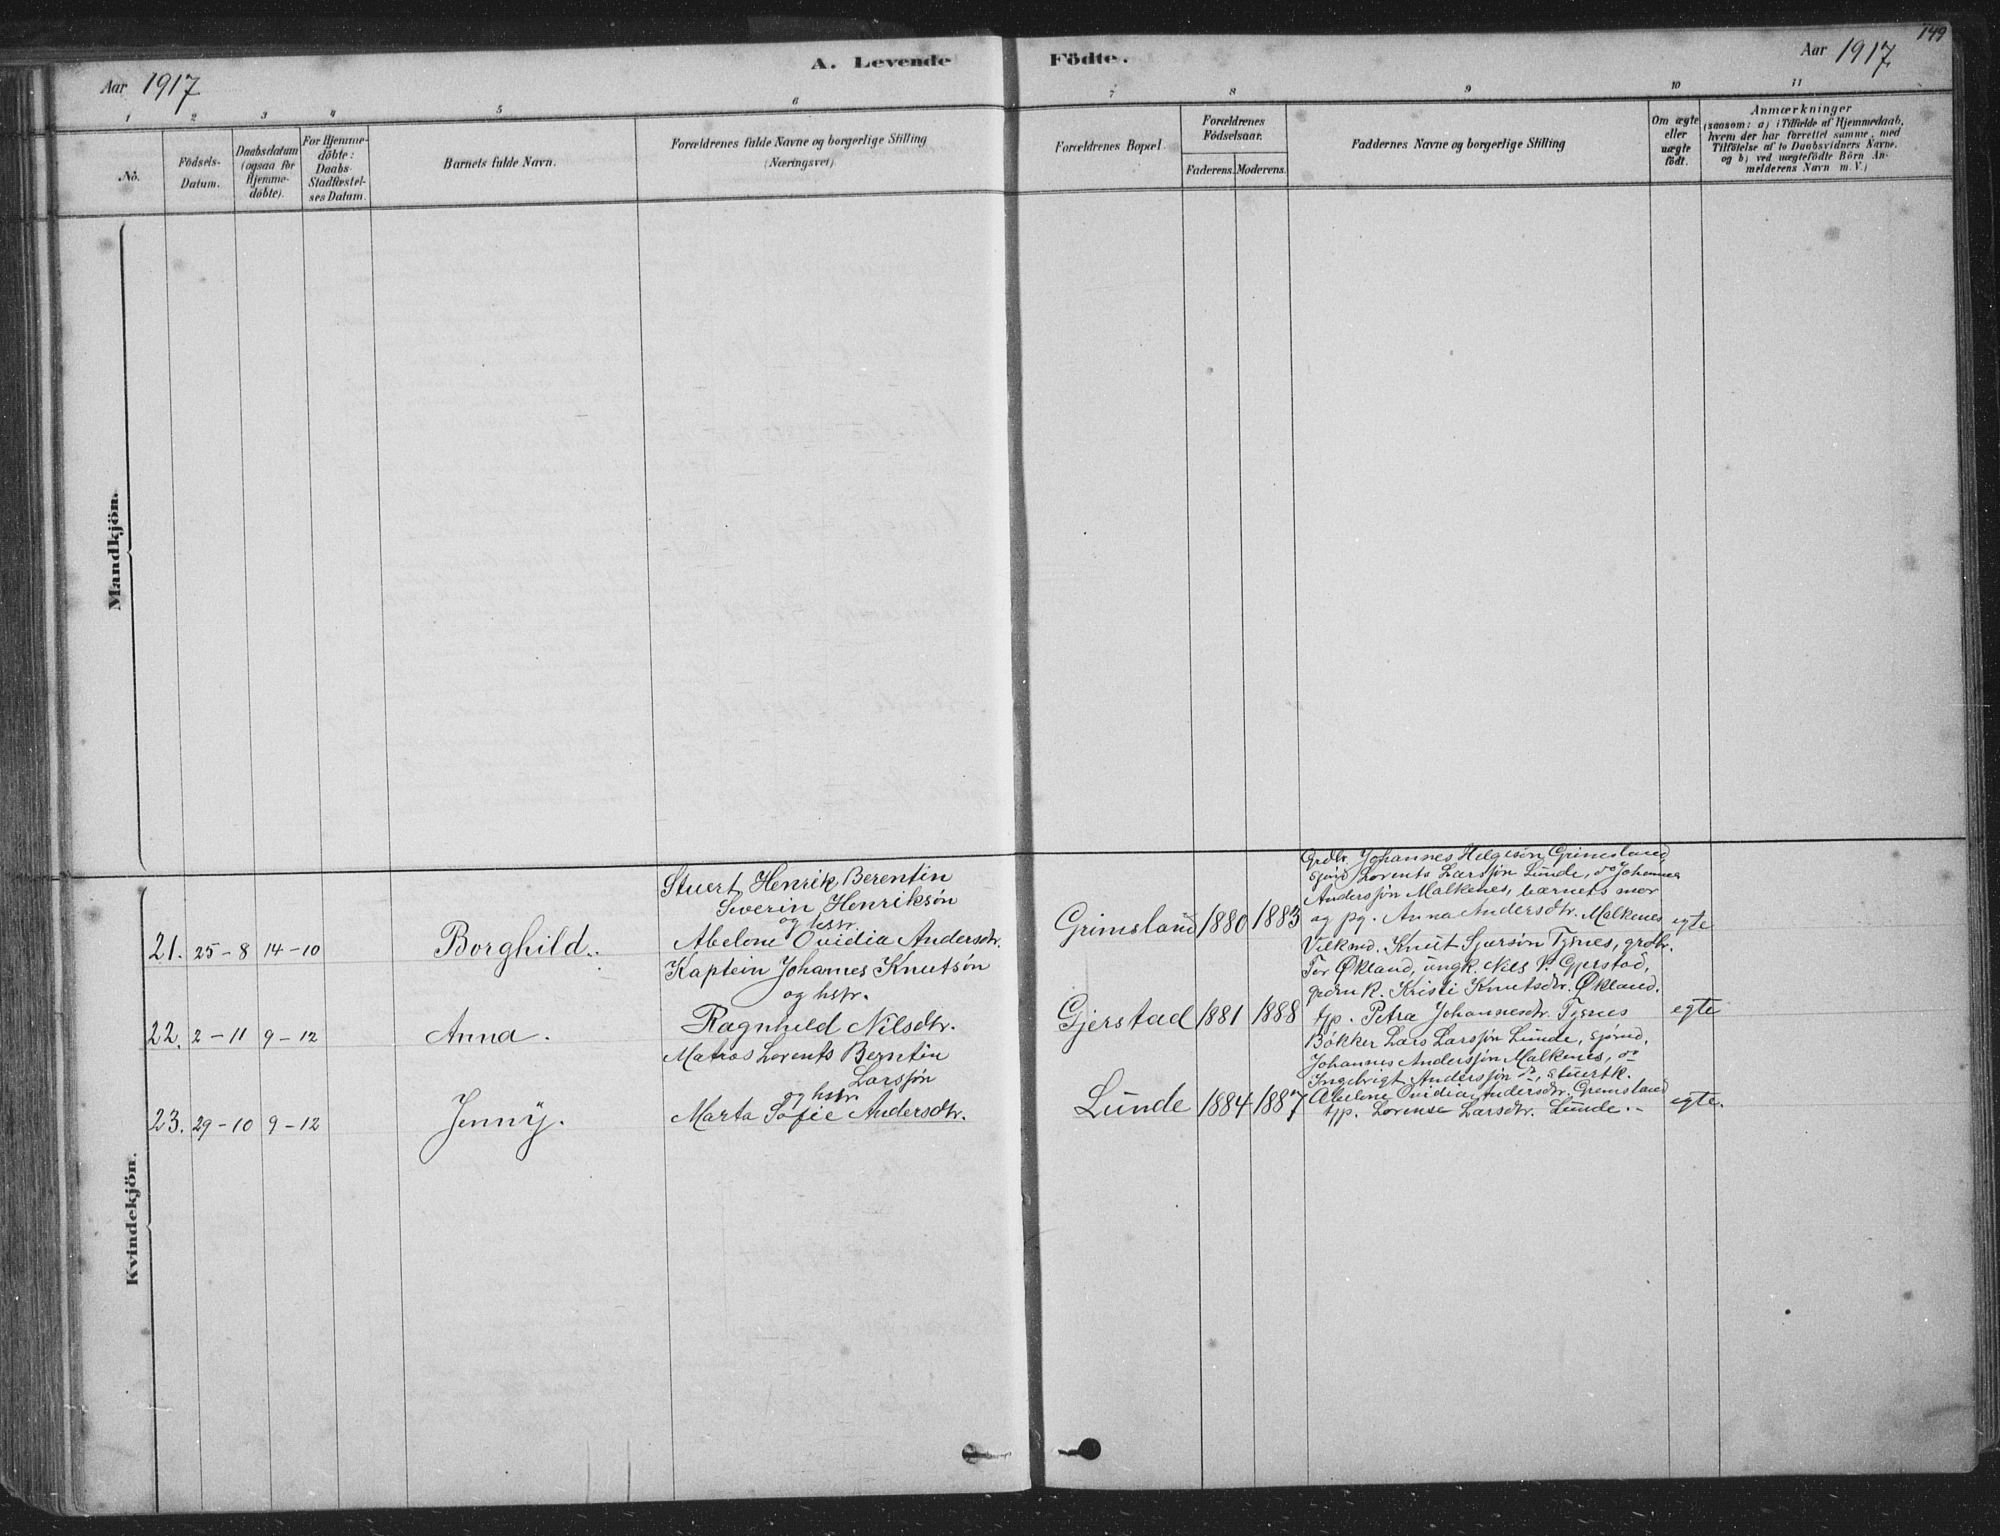 149
Aar 1917
A. Levende Födte.
Aar 1917
1 2 3 4 5 6 7 8 9 10 11
No.
Födsels-
Datum.
Daabsdatum
(ogsaa for
Hjemme-
döbte).
For Hjemme-
döbte:
Daabs-
Stadfæstel-
ses Datum.
Barnets fulde Navn.
Forældrenes fulde Navne og borgerlige Stilling
(Næringsvei).
Forældrenes Bopæl.
Forældrenes
Födselsaar.
Faderens. Moderens.
Faddernes Navne og borgerlige Stilling
Om ægte
eller
uægte
födt.
Anmærkninger
(saasom: a) i Tilfælde af Hjemmedaab,
hvem der har forrettet samme, med
Tilföielse af to Daabsvidners Navne.
og b) ved uægtefödte Börn An-
melderens Navn m. V.)
Mandkjön.
Kvindekjön.
21. 25-8 14-10
Borghild.
Stuert Henrik Berentin
Severin Henriksön
og hstr.
Abelone Ovidia Andersdtr.
Grimsland 1880 1883
Grdbr. Johannes Helgesön Grimsland
sjömd Lorents Larssjön Lunde, do Johannes
Anderssjön Malkenes, barnets mor
og pg. Anna Andersdtr. Malkenes
egte
22. 2-11 9-12
Anna.
Kaptein Johannes Knutsön
og hstr.
Ragnhild Nilsdtr.
Gjerstad 1881 1888
Knut Sjursön Tysnes, grdbr.
Tor Økland, ungk. Nils P. Gjerstad,
grdm k. Kristi Knutsdtr. Økland.
tjp. Petra Johannesdtr. Tysnes
egte
23. 29-10 9-12
Jenny.
Matros Lorents Berntin
Larssjön
og hstr
Marta Sofie Andersdtr.
Lunde 1884 1887
Bökker Lars Larssjön Lunde, sjömd.
Johannes Anderssjön Malkenes, do
Ingebrigt Anderssjön do, stuertk.
Abelone Ovidia Andersdtr. Grimsland
tjp. Lorense Larsdtr. Lunde.
egte.